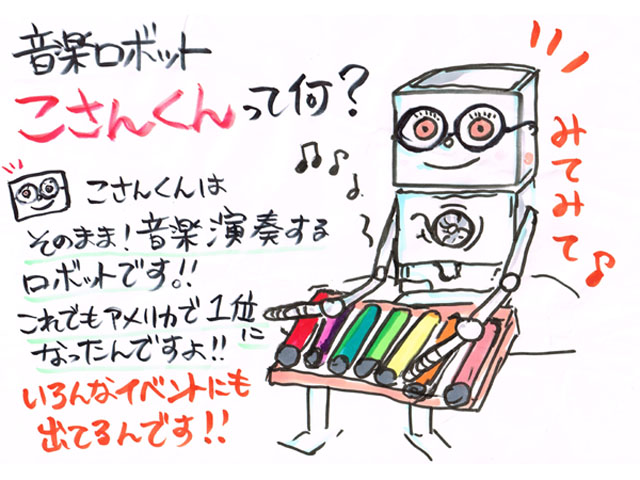 音楽ロボット
こさんくんって何?
こさんくんは
そのまま!音楽演奏する
ロボットです!!
これでもアメリカで1位に
なったんですよ!!
いろんなイベントにも
出てるんです!!
みてみて♪